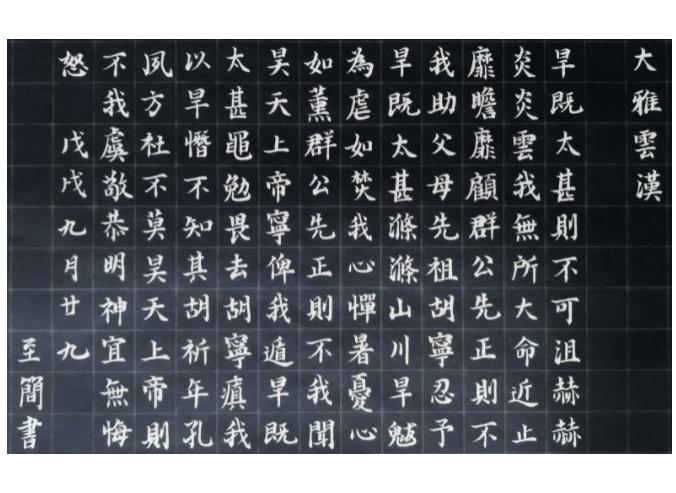 大雅雲漢
旱既太甚則不可沮赫赫
炎炎雲我無所大命近止
靡瞻靡顧群公先正則不
我助父母先祖胡寧忍予
旱既太甚滌滌山川旱魃
為虐如焚我心憚暑憂心
如薰群公先正則不我聞
昊天上帝寧俾我遁旱既
太甚黽勉畏去胡寧瘨我
以旱憯不知其胡祈年孔
夙方社不莫昊天上帝則
不我虞敬恭明神宜無悔
怒 戊戌九月廿九
至簡書